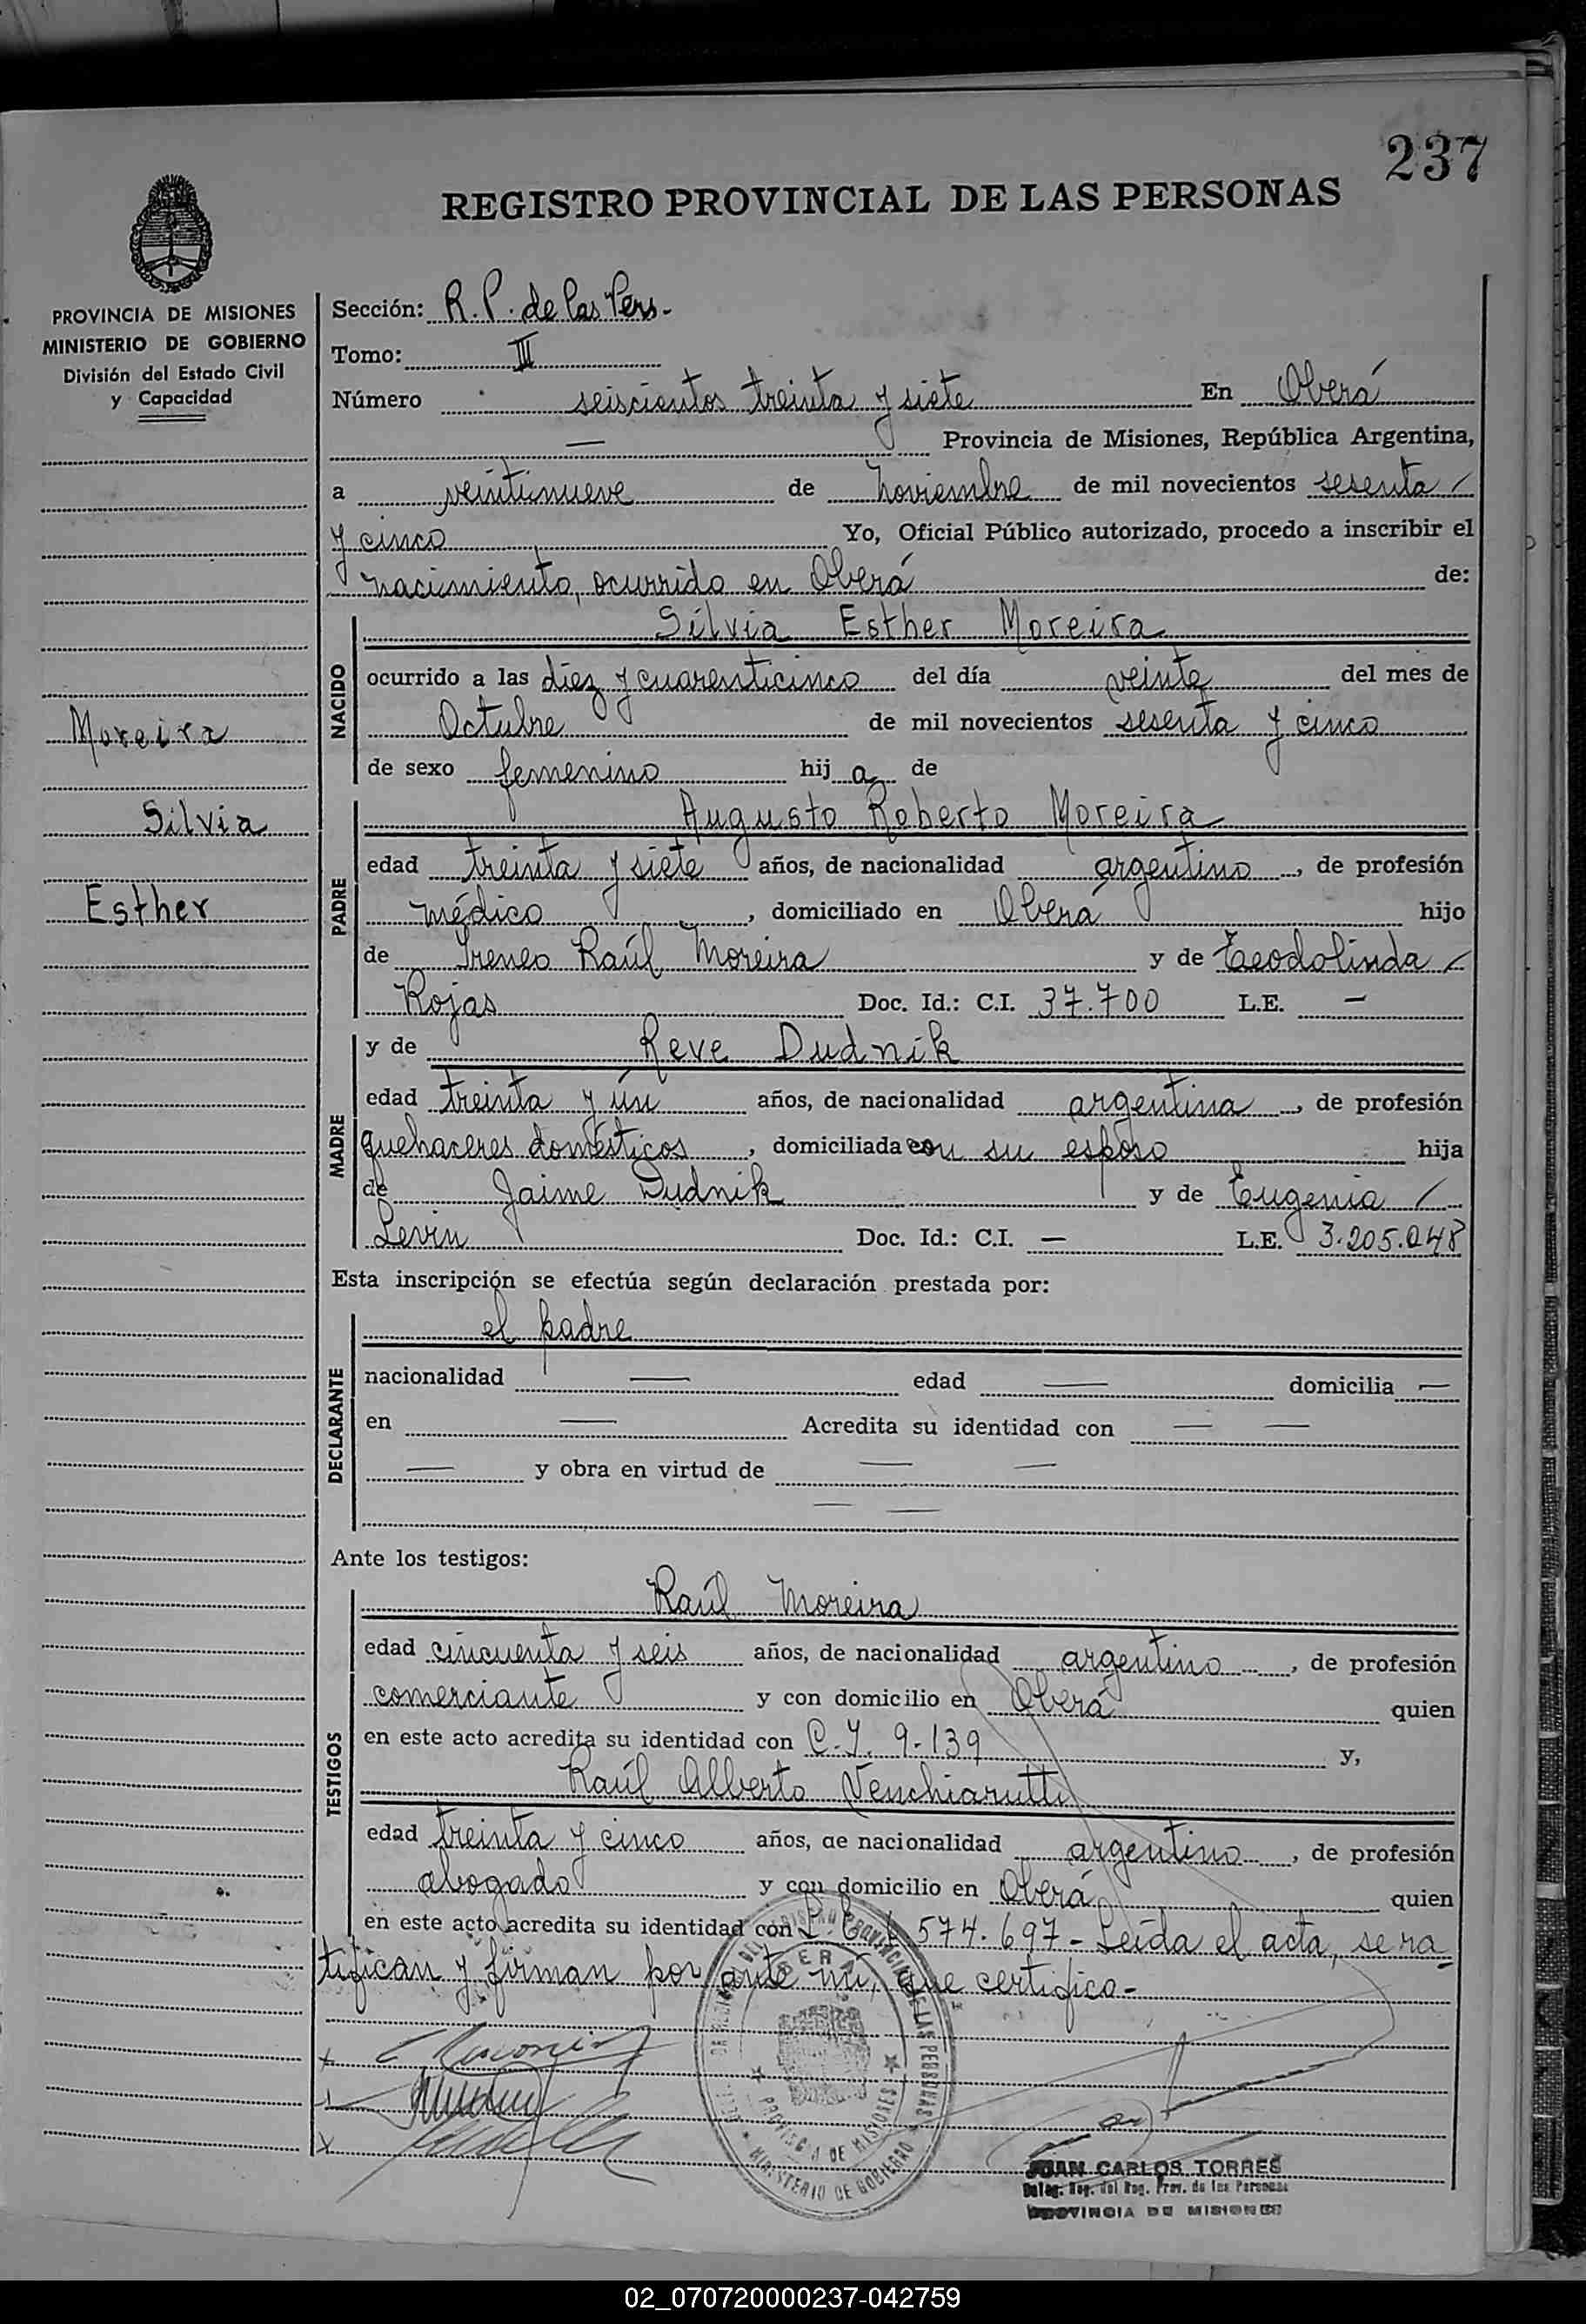 237
REGISTRO PROVINCIAL DE LAS PERSONAS
PROVINCIA DE MISIONES
MINISTERIO DE GOBIERNO
División del Estado Civil
y Capacidad
Moreira
Silvia
Esther
Sección: R. P. de las Pers.
Tomo: III
Número seiscientos treinta y siete En Oberá
— Provincia de Misiones, República Argentina,
a veintinueve de Noviembre de mil novecientos sesenta
y cinco Yo, Oficial Público autorizado, procedo a inscribir el
nacimiento, ocurrido en Oberá de:
NACIDO
Silvia Esther Moreira
ocurrido a las diez y cuarenticinco del día veinte del mes de
Octubre de mil novecientos sesenta y cinco
de sexo femenino hij a de
PADRE
Augusto Roberto Moreira
edad treinta y siete años, de nacionalidad argentino, de profesión
médico, domiciliado en Oberá hijo
de Ireneo Raúl Moreira y de Teodolinda
Rojas Doc. Id.: C.I. 37.700 L.E. —
MADRE
y de Reve Dudnik
edad treinta y ún años, de nacionalidad argentina, de profesión
quehaceres domésticos, domiciliada con su esposo hija
de Jaime Dudnik y de Eugenia
Levin Doc. Id.: C.I. — L.E. 3.205.048
Esta inscripción se efectúa según declaración prestada por:
DECLARANTE
el padre
nacionalidad — edad — domicilia —
en — Acredita su identidad con — —
— y obra en virtud de — —
— —
Ante los testigos:
TESTIGOS
Raúl Moreira
edad cincuenta y seis años, de nacionalidad argentino, de profesión
comerciante y con domicilio en Oberá quien
en este acto acredita su identidad con C.I. 9.139 y,
Raúl Alberto Venchiarutti
edad treinta y cinco años, de nacionalidad argentino, de profesión
abogado y con domicilio en Oberá quien
en este acto acredita su identidad con L. E. 574.697 - Leída el acta, se ra
tifican y firman por ante mí, que certifico-
OBERA
PROVINCIA DE MISIONES
MINISTERIO DE GOBIERNO
JUAN CARLOS TORRES
PROVINCIA DE MISIONES
02_070720000237-042759